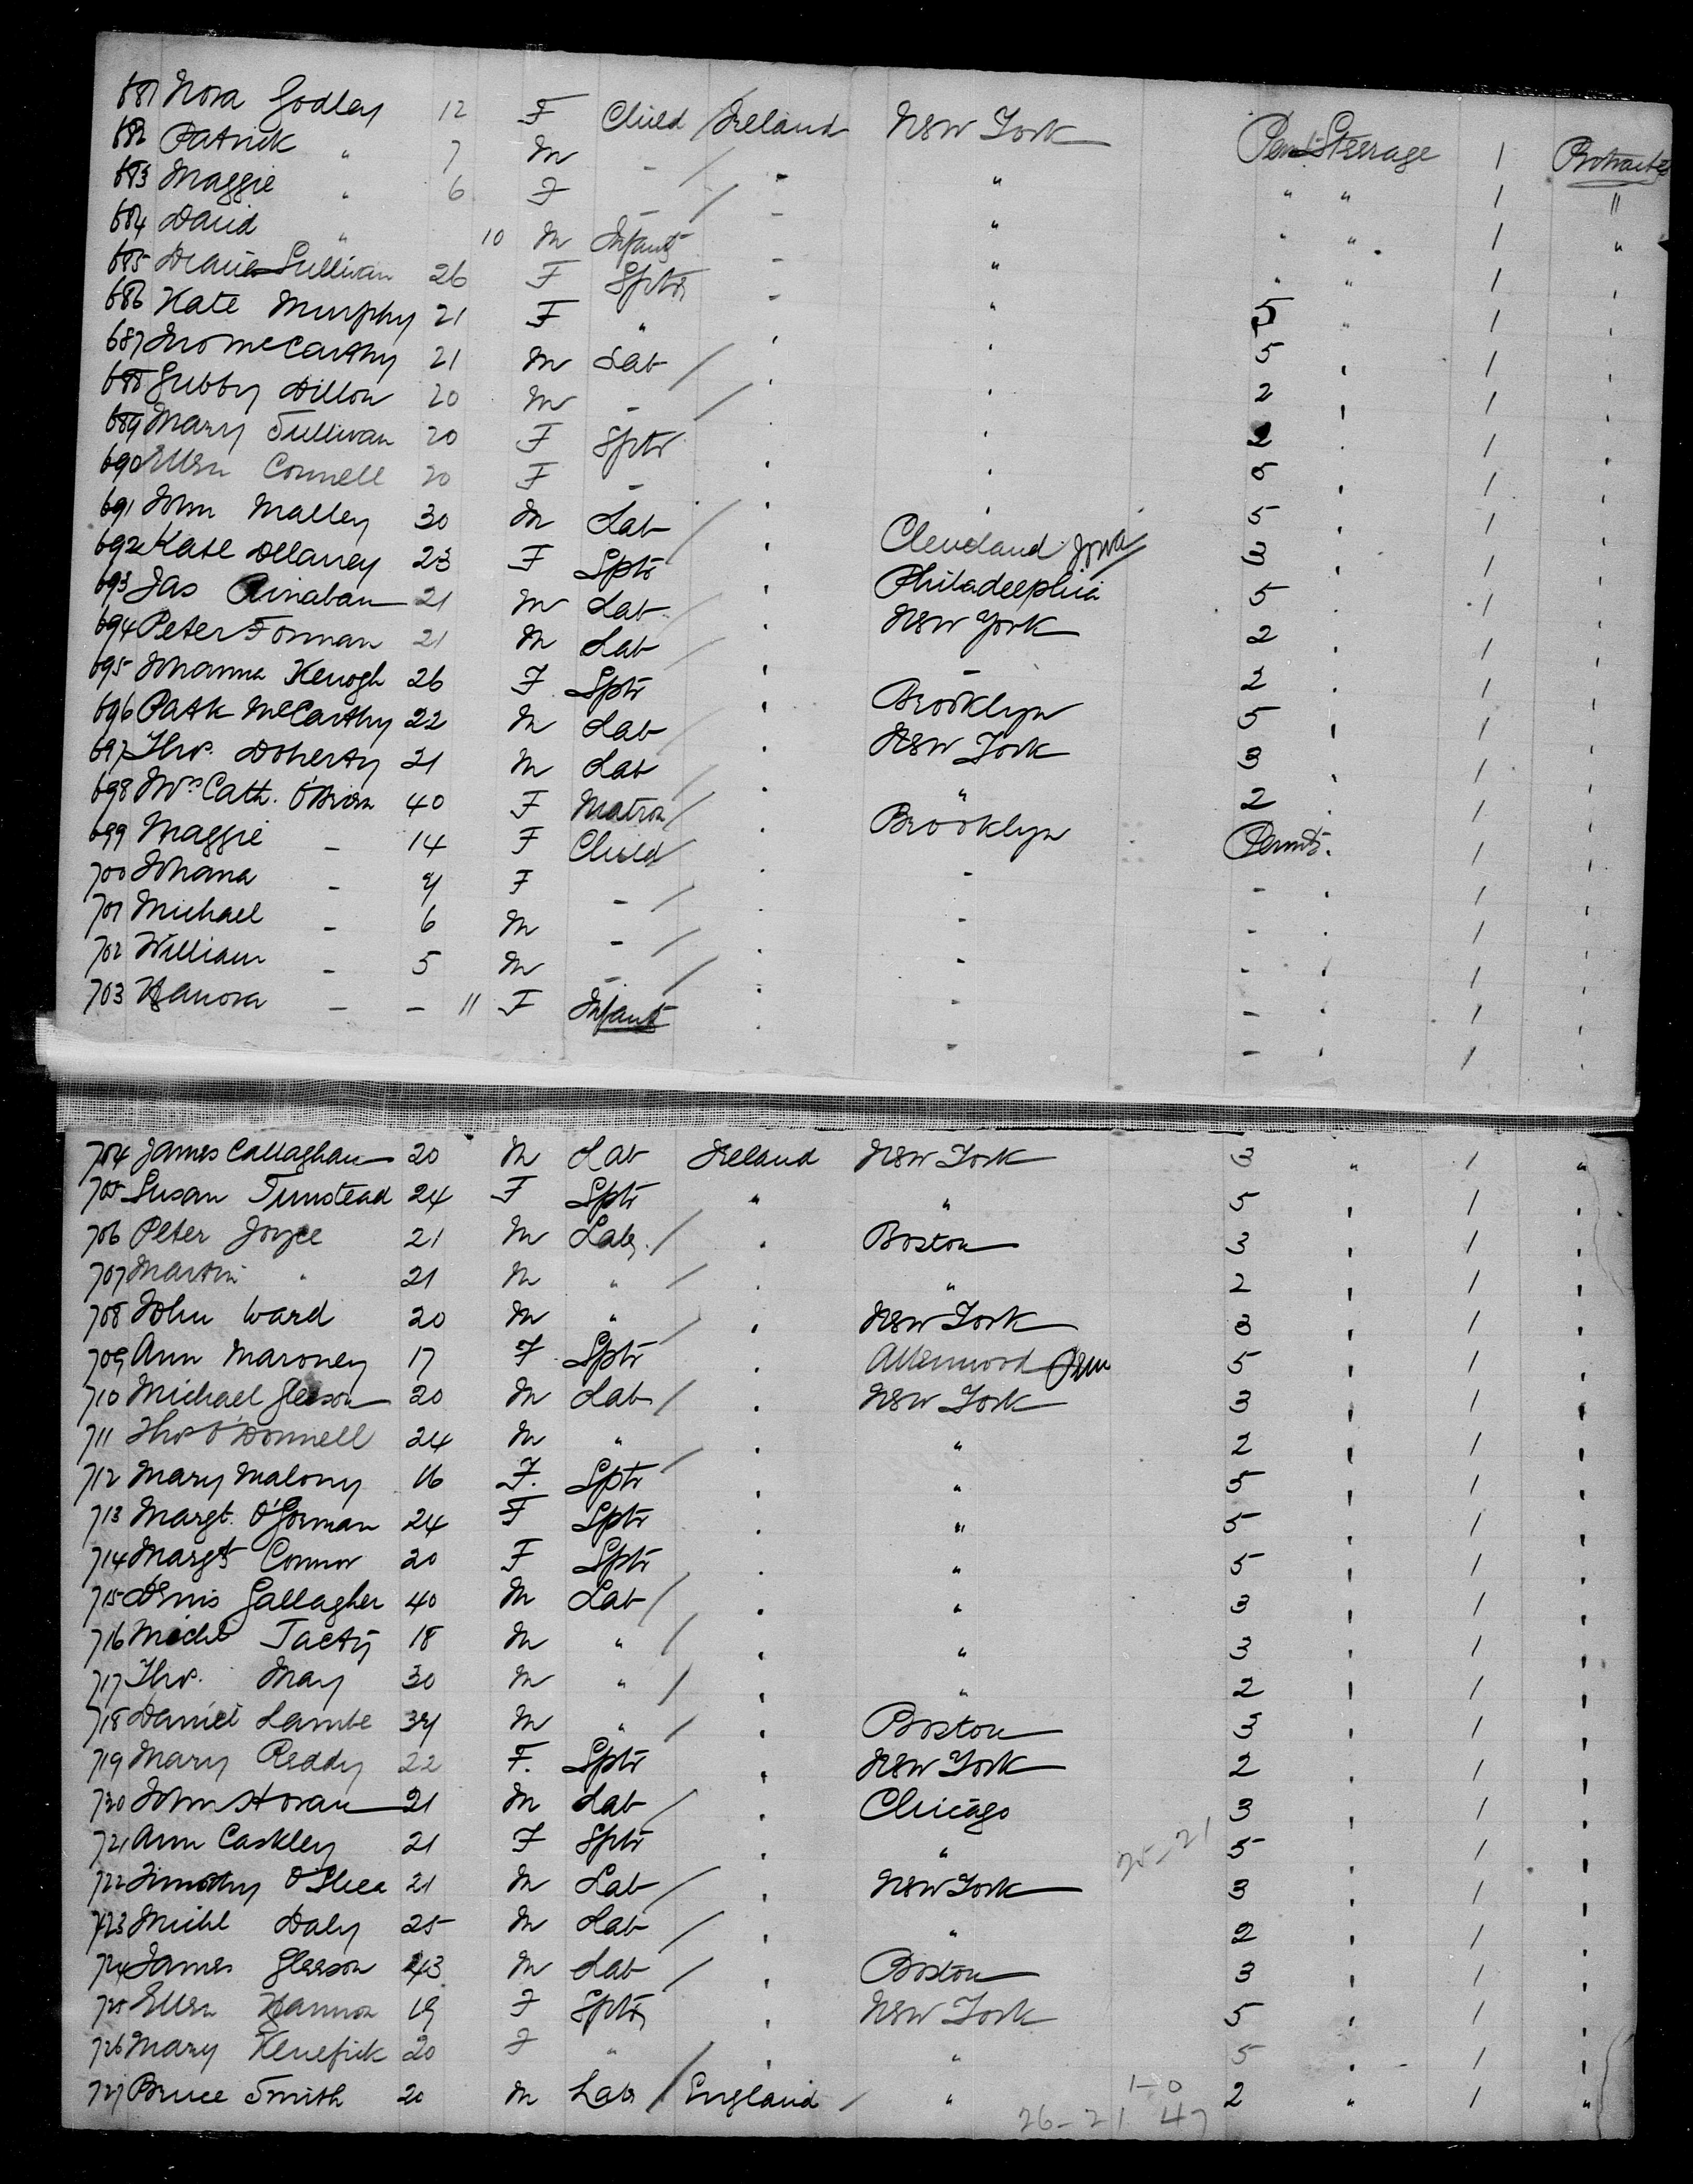 681 Nora Godley 12 F Child / Ireland New York Pent Steerage 1 Protracted
682 Patrick " 7 M - / - " " " 1 "
683 Maggie " 6 F - / - " " " 1 "
684 David " 10 M Infant - " " " 1 '
685 Sullivan 26 F Sptr - " 5 " 1 '
686 Kate Murphy 21 F " ' ' 5 ' 1 '
687 Jno McCarthy 21 M Lab / ' ' 2 ' 1 '
688 Gubby Dillon 20 M - / ' ' 2 ' 1 '
689 Mary Sullivan 20 F Sptr ' ' 5 ' 1 '
690 Ellen Connell 20 F - ' ' 5 ' 1 '
691 John Malley 30 M Lab / ' Cleveland Iowa 3 ' 1 '
692 Kate Delaney 23 F Sptr ' Philadelphia 5 ' 1 '
693 Jas 21 M Lab / ' New York 2 ' 1 '
694 Peter Forman 21 M Lab / ' - 2 ' 1 '
695 Johanna Keuogh 26 F Sptr ' Brooklyn 5 ' 1 '
696 Patk McCarthy 22 M Lab / ' New York 3 ' 1 '
697 Thos. Doherty 21 M Lab / ' " 2 ' 1 '
698 Mrs Cath. O'Brien 40 F Matron / ' Brooklyn Pent. 1 '
699 Maggie - 14 F Child / ' - - ' 1 '
700 Johana - 9 F - / ' - - ' 1 '
701 Michael - 6 M - / ' - - ' 1 '
702 William - 5 M - / ' - - ' 1 '
703 Hanora - - 11 F Infant ' - - ' 1 '
704 James Callaghan 20 M Lab Ireland New York 3 " 1 "
705 Susan Tunstead 24 F Sptr " " 5 ' 1 '
706 Peter Joyce 21 M Labr / ' Boston 3 ' 1 '
707 Martin " 21 M " / ' " 2 ' 1 '
708 John Ward 20 M " / ' New York 3 ' 1 '
709 Ann Maroney 17 F Sptr ' Penn 5 ' 1 '
710 Michael Gleeson 20 M Lab / ' New York 3 ' 1 '
711 Thos O'Donnell 24 M " / ' " 2 ' 1 '
712 Mary Malony 16 F. Sptr ' " 5 ' 1 '
713 Margt. O'Gorman 24 F Sptr ' " 5 ' 1 '
714 Margt Connor 20 F Sptr ' " 5 ' 1 '
715 Denis Gallagher 40 M Lab / ' " 3 ' 1 '
716 Michl 18 M " / ' " 3 ' 1 '
717 Thos. May 30 M " / ' " 2 ' 1 '
718 Daniel Lambe 34 M " / ' Boston 3 ' 1 '
719 Mary Reddy 22 F. Sptr ' New York 2 ' 1 '
720 John Horan 21 M Lab / ' Chicago 3 ' 1 '
721 Ann Caskley 21 F Sptr ' " 25-21 5 ' 1 '
722 Timothy O'Shea 21 M Lab / ' New York 3 ' 1 '
723 Michl Daly 25 M Lab / ' " 2 ' 1 '
724 James Gleeson 43 M Lab / ' Boston 3 ' 1 '
725 Ellen Hannon 19 F Sptr ' New York 5 ' 1 '
726 Mary Kenefick 20 F " ' " 5 ' 1 '
727 Bruce Smith 20 M Labr / England / " 1-0 2 " 1 "
26-21 47